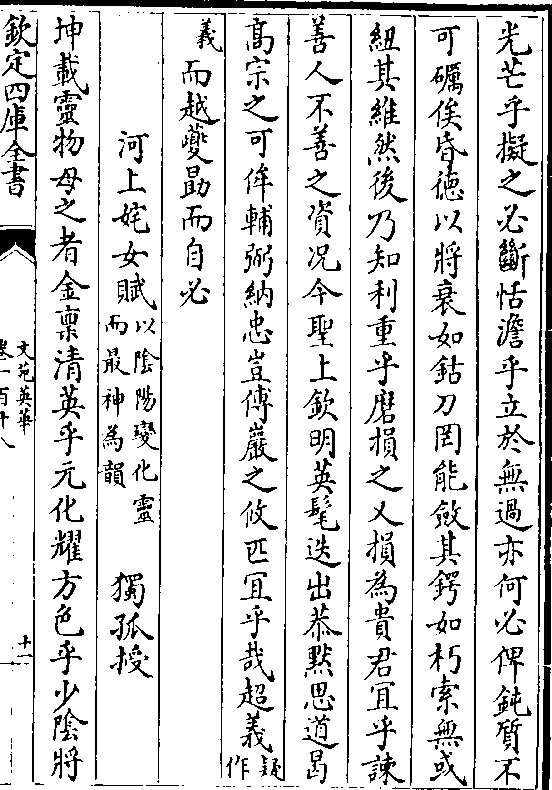 光芒乎擬之必斷恬澹乎立於無過亦何必俾鈍質不
可礪俟昏徳以將衰如鈷刀罔能斂其鍔如朽索無或
紐其維然後乃知利重乎磨損之乂損為貴君冝乎諫
善人不善之資况今聖上欽明英髦迭出恭黙思道曷
髙宗之可侔輔弼納忠豈傅巖之攸匹冝乎哉超義疑作
義而越夔勖而自必
河上姹女賦以陰陽變化靈而最神為韻 獨孤授
坤載靈物母之者金禀清英乎元化耀方色乎少陰將
欽定四庫全書
文苑英華
卷一百十八
十一